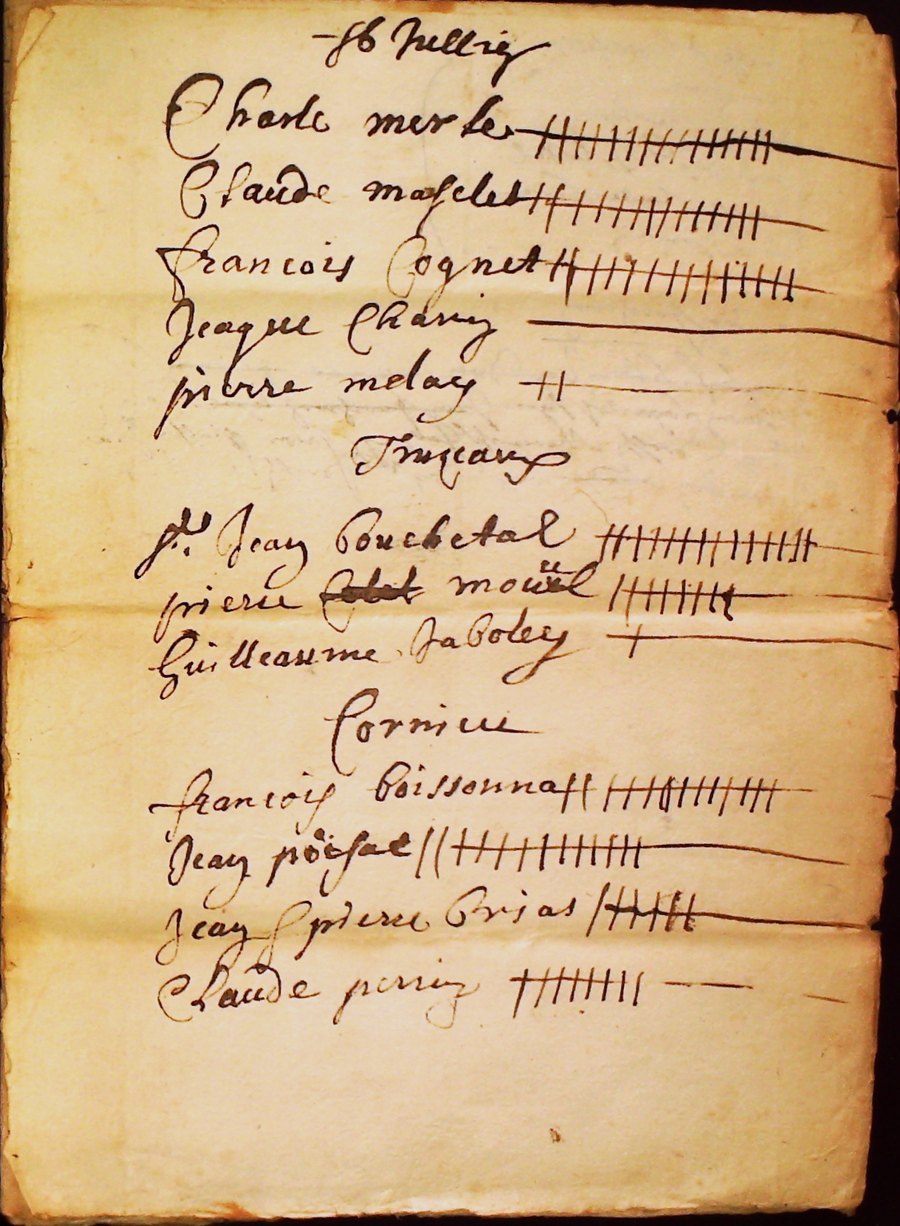 St Jullien
Charle merle
Claude masclet
francois Cognet
Jeaque Charin
pierre melay
Truceaux
Sr. Jean bouchetal
pierre moüel
Guilleaume Jaboley
Cornieu
francois boissonna
Jean poisat
Jean pierre brias
Claude perrin